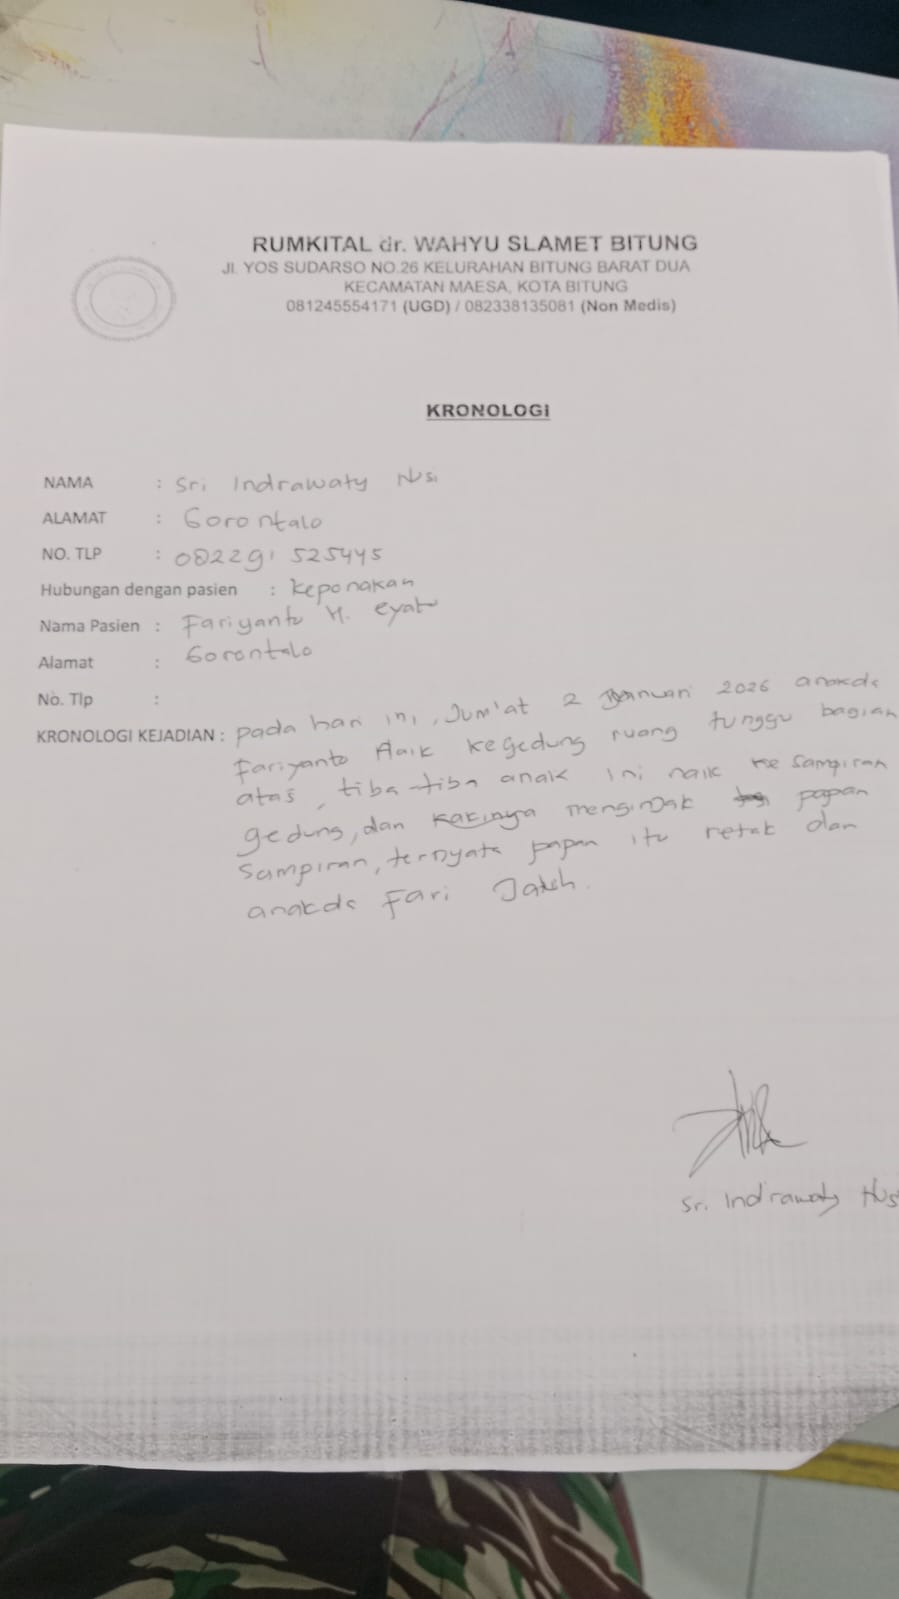 RUMKITAL dr. WAHYU SLAMET BITUNG
Jl. YOS SUDARSO NO.26 KELURAHAN BITUNG BARAT DUA
KECAMATAN MAESA, KOTA BITUNG
081245554171 (UGD) / 082338135081 (Non Medis)
KRONOLOGI
NAMA : Sri Indrawaty Nusi
ALAMAT : Gorontalo
NO. TLP : 082291 525445
Hubungan dengan pasien : keponakan
Nama Pasien : Fariyanto H. eyato
Alamat : Gorontalo
No. Tlp :
KRONOLOGI KEJADIAN : pada hari ini, Jum'at 2 Januari 2026 anakda
Fariyanto Naik kegedung ruang tunggu bagian
atas, tiba-tiba anak ini naik ke sampiran
gedung, dan kakinya menginjak papan
sampiran, ternyata papan itu retak dan
anakda Fari Jatuh.
Sri Indrawaty